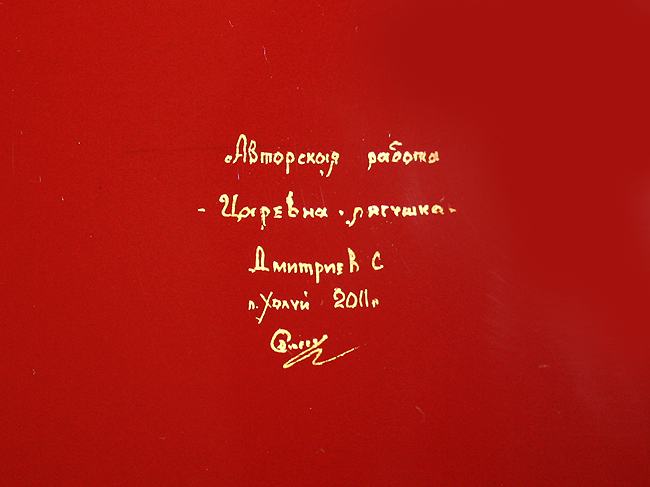 Авторская работа
- Царевна-лягушка-
Дмитриев С
п. Холуй 2011г